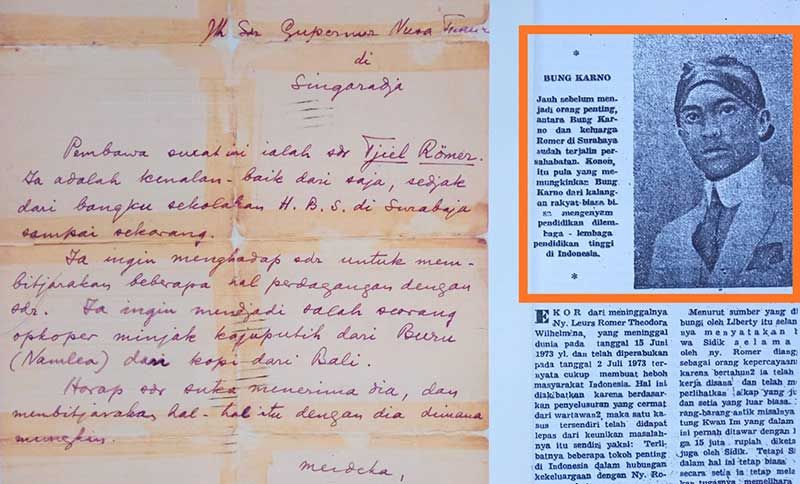 Jth Sdr Gupernur Nusa Tenggara
di
Singaradja
Pembawa surat ini ialah sdr Tjiel Römer.
Ia adalah kenalan-baik dari saja, sedjak
dari bangku sekolahan H.B.S. di Surabaja
sampai sekarang.
Ia ingin menghadap sdr untuk mem-
bitjarakan beberapa hal perdagangan dengan
sdr. Ia ingin mendjadi salah seorang
opkoper minjak kajuputih dari Buru
(Namlea) dan kopi dari Bali.
Harap sdr suka menerima dia, dan
membitjarakan hal-hal itu dengan dia dimana
mungkin.
Merdeka,
*
BUNG KARNO
Jauh sebelum men-
jadi orang penting,
antara Bung Kar-
no dan keluarga
Romer di Surabaya
sudah terjalin per-
sahabatan. Konon,
itu pula yang me-
mungkinkan Bung
Karno dari kalang-
an rakyat-biasa bi-
sa mengenyam
pendidikan dilem-
baga-lembaga
pendidikan tinggi
di Indonesia.
*
EKOR dari meninggalnya
Ny. Leurs Romer Theodora
Wilhelmina, yang meninggal
dunia pada tanggal 15 Juni
1973 yl. dan telah diperabukan
pada tanggal 2 Juli 1973 ter-
nyata cukup membuat heboh
masyarakat Indonesia. Hal ini
diakibatkan karena berdasar-
kan penyelusuran yang cermat
dari wartawan2, maka satu ka-
sus tersendiri telah didapat
lepas dari keunikan masalah-
nya itu sendiri yakni: Terli-
batnya beberapa tokoh penting
di Indonesia dalam hubungan
kekeluargaan dengan Ny. Ro-
Menurut sumber yang di
bungi oleh Liberty itu selan
nya menyatakan b
wa Sidik selama
oleh ny. Romer diang
sebagai orang kepercayaan
karena bertahun2 ia telah
kerja disana dan telah m
perlihatkan sikap yang ju
dan setia yang luar biasa.
rang-barang-antik misalnya
tung Kwan Im yang dalam
ini pernah ditawar dengan
ga 15 juta rupiah diketa
juga oleh Sidik. Tetapi S
dalam hal ini tetap biasa
secara setia in tetap mela
kan tugasnya memelihara